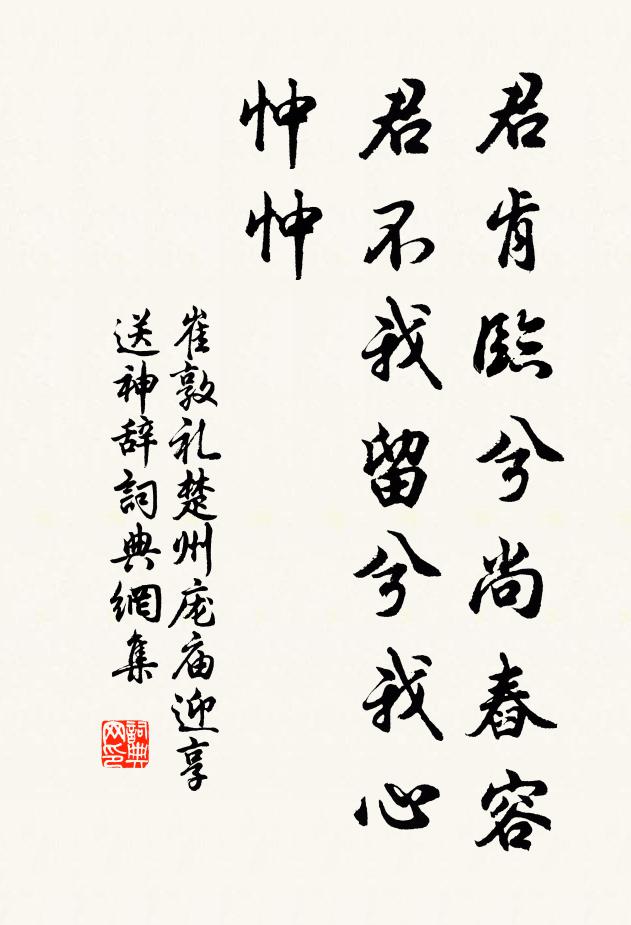 君肯臨兮尚舂容
君不我留兮我心
忡忡
崔敦礼楚州庞庙迎享
送神辞詞典網集
詞典
网印